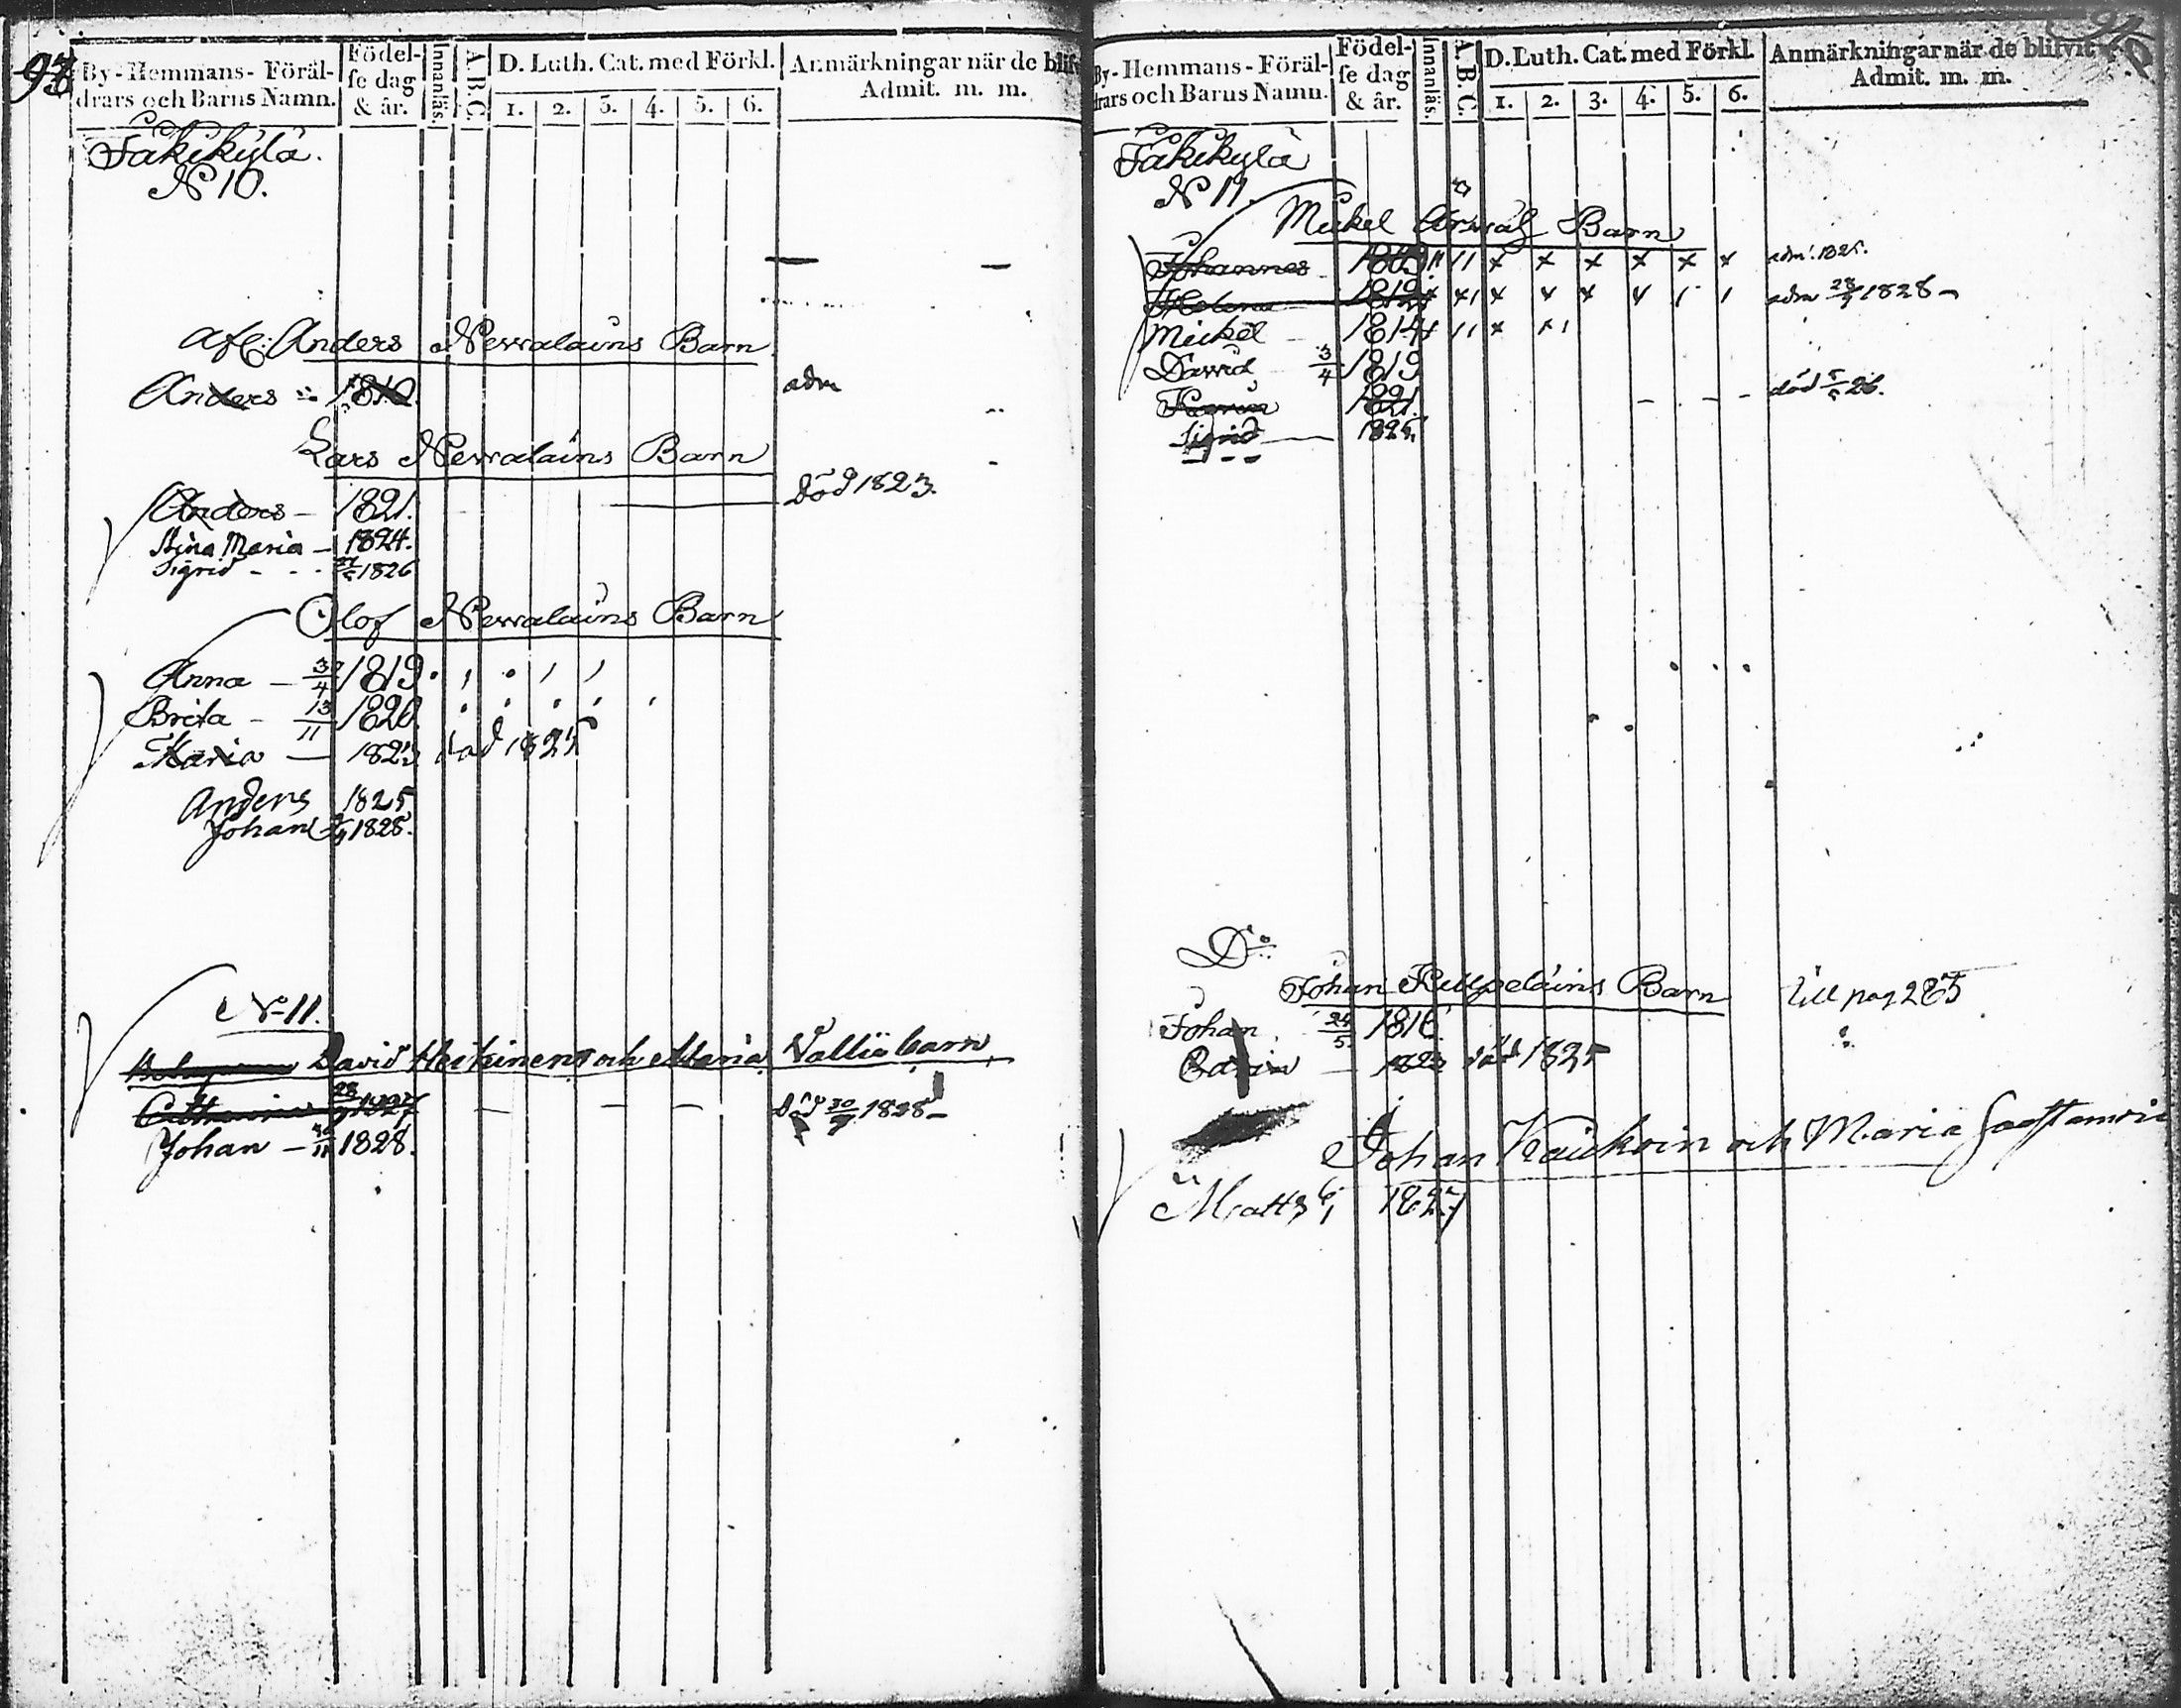 93
By-Hemmans-Föräl-
drars och Barns Namn.
Födel-
se dag
& år.
Innanläs.
A.B.C.
D. Luth. Cat. med Förkl.
1. 2. 3. 4. 5. 6.
Anmärkningar när de blifv
Admit. m. m.
Fäkikylä.
N 10.
Afl: Anders Nevalains Barn
Anders 1810. adm
Lars Nevalains Barn
Anders 1821. död 1823.
Stina Maria 1824.
Sigrid 1826
Olof Nevalains Barn
Anna 30/4 1819
Brita 13/11 1820.
Maria 1823 död 1825
Anders 1825
Johan 1828.
N 11.
David Heikinens och Maria Vallia barn
1827 död 30/9 1828
Johan 1828.
By-Hemmans-Föräl-
drars och Barns Namn.
Födel-
se dag
& år.
Innanläs.
A.B.C.
D. Luth. Cat. med Förkl.
1. 2. 3. 4. 5. 6.
Anmärkningar när de blifvit
Admit. m. m.
Fäkikylä
N 11.
Mickel Barn
Johannes adm. 1825.
Helena 1812 adm 1828
Mickel 1814
David 3/4 1819
1821. död 26.
Sigrid 1825
D:o
Johan Barn till pag 285
Johan 24/5 1816
Carin 1823 död 1825
Johan och Maria
Matts 1827